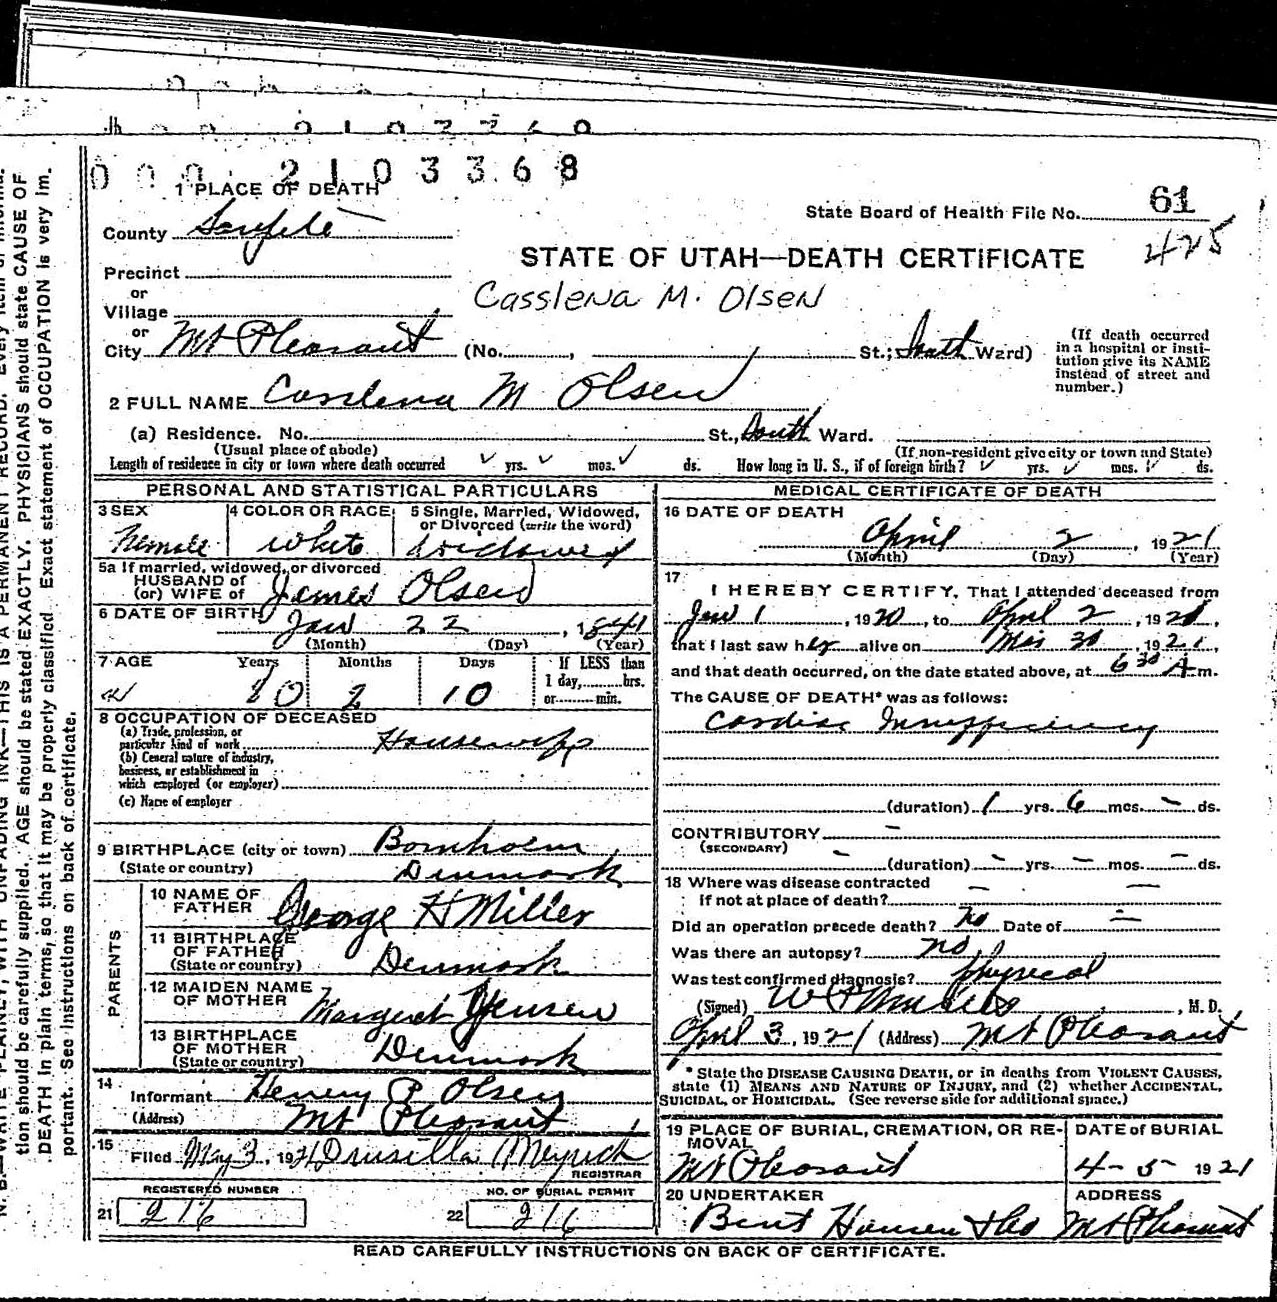 000 2103368
1 PLACE OF DEATH
State Board of Health File No. 61
425
County Sanpete
STATE OF UTAH—DEATH CERTIFICATE
Precinct
or
Casslena M. Olsen
Village
or
City Mt Pleasant (No. , St.; South Ward)
(If death occurred
in a hospital or insti-
tution give its NAME
instead of street and
number.)
2 FULL NAME Casslena M Olsen
(a) Residence. No. St., South Ward.
(Usual place of abode)
(If non-resident give city or town and State)
Length of residence in city or town where death occurred yrs. mos. ds. How long in U. S., if of foreign birth? yrs. mos. ds.
PERSONAL AND STATISTICAL PARTICULARS
3 SEX
Female
4 COLOR OR RACE
White
5 Single, Married, Widowed,
or Divorced (write the word)
widowed
5a If married, widowed, or divorced
HUSBAND of
(or) WIFE of James Olsen
6 DATE OF BIRTH
Jan 22, 1841
(Month) (Day) (Year)
7 AGE Years Months Days
80 2 10
If LESS than
1 day, hrs.
or min.
8 OCCUPATION OF DECEASED
(a) Trade, profession, or
particular kind of work Housewife
(b) General nature of industry,
business, or establishment in
which employed (or employer)
(c) Name of employer
9 BIRTHPLACE (city or town) Bornholm
(State or country) Denmark
PARENTS
10 NAME OF
FATHER George H Miller
11 BIRTHPLACE
OF FATHER
(State or country) Denmark
12 MAIDEN NAME
OF MOTHER Margaret Jensen
13 BIRTHPLACE
OF MOTHER
(State or country) Denmark
14
Informant Henry P Olsen
(Address) Mt Pleasant
15
Filed May 3, 1921 Drusilla Meyrick
REGISTRAR
REGISTERED NUMBER
21 216
NO. OF BURIAL PERMIT
22 216
MEDICAL CERTIFICATE OF DEATH
16 DATE OF DEATH
April 2, 1921
(Month) (Day) (Year)
17
I HEREBY CERTIFY, That I attended deceased from
Jan 1, 1920, to April 2, 1921,
that I last saw her alive on Mar 30, 1921,
and that death occurred, on the date stated above, at 6 30 A m.
The CAUSE OF DEATH* was as follows:
Cardiac Insufficiency
(duration) 1 yrs. 6 mos. - ds.
CONTRIBUTORY -
(SECONDARY)
- (duration) - yrs. - mos. - ds.
18 Where was disease contracted
if not at place of death? - -
Did an operation precede death? No Date of -
Was there an autopsy? no
Was test confirmed diagnosis? physical
(Signed) , M. D.
April 3, 1921 (Address) Mt Pleasant
* State the DISEASE CAUSING DEATH, or in deaths from VIOLENT CAUSES,
state (1) MEANS AND NATURE OF INJURY, and (2) whether ACCIDENTAL,
SUICIDAL, or HOMICIDAL. (See reverse side for additional space.)
19 PLACE OF BURIAL, CREMATION, OR RE-
MOVAL
Mt Pleasant
DATE OF BURIAL
4-5- 1921
20 UNDERTAKER
Bent Hansen & Co
ADDRESS
Mt Pleasant
READ CAREFULLY INSTRUCTIONS ON BACK OF CERTIFICATE.
tion should be carefully supplied. AGE should be stated EXACTLY. PHYSICIANS should state CAUSE OF
DEATH in plain terms, so that it may be properly classified. Exact statement of OCCUPATION is very im-
portant. See instructions on back of certificate.